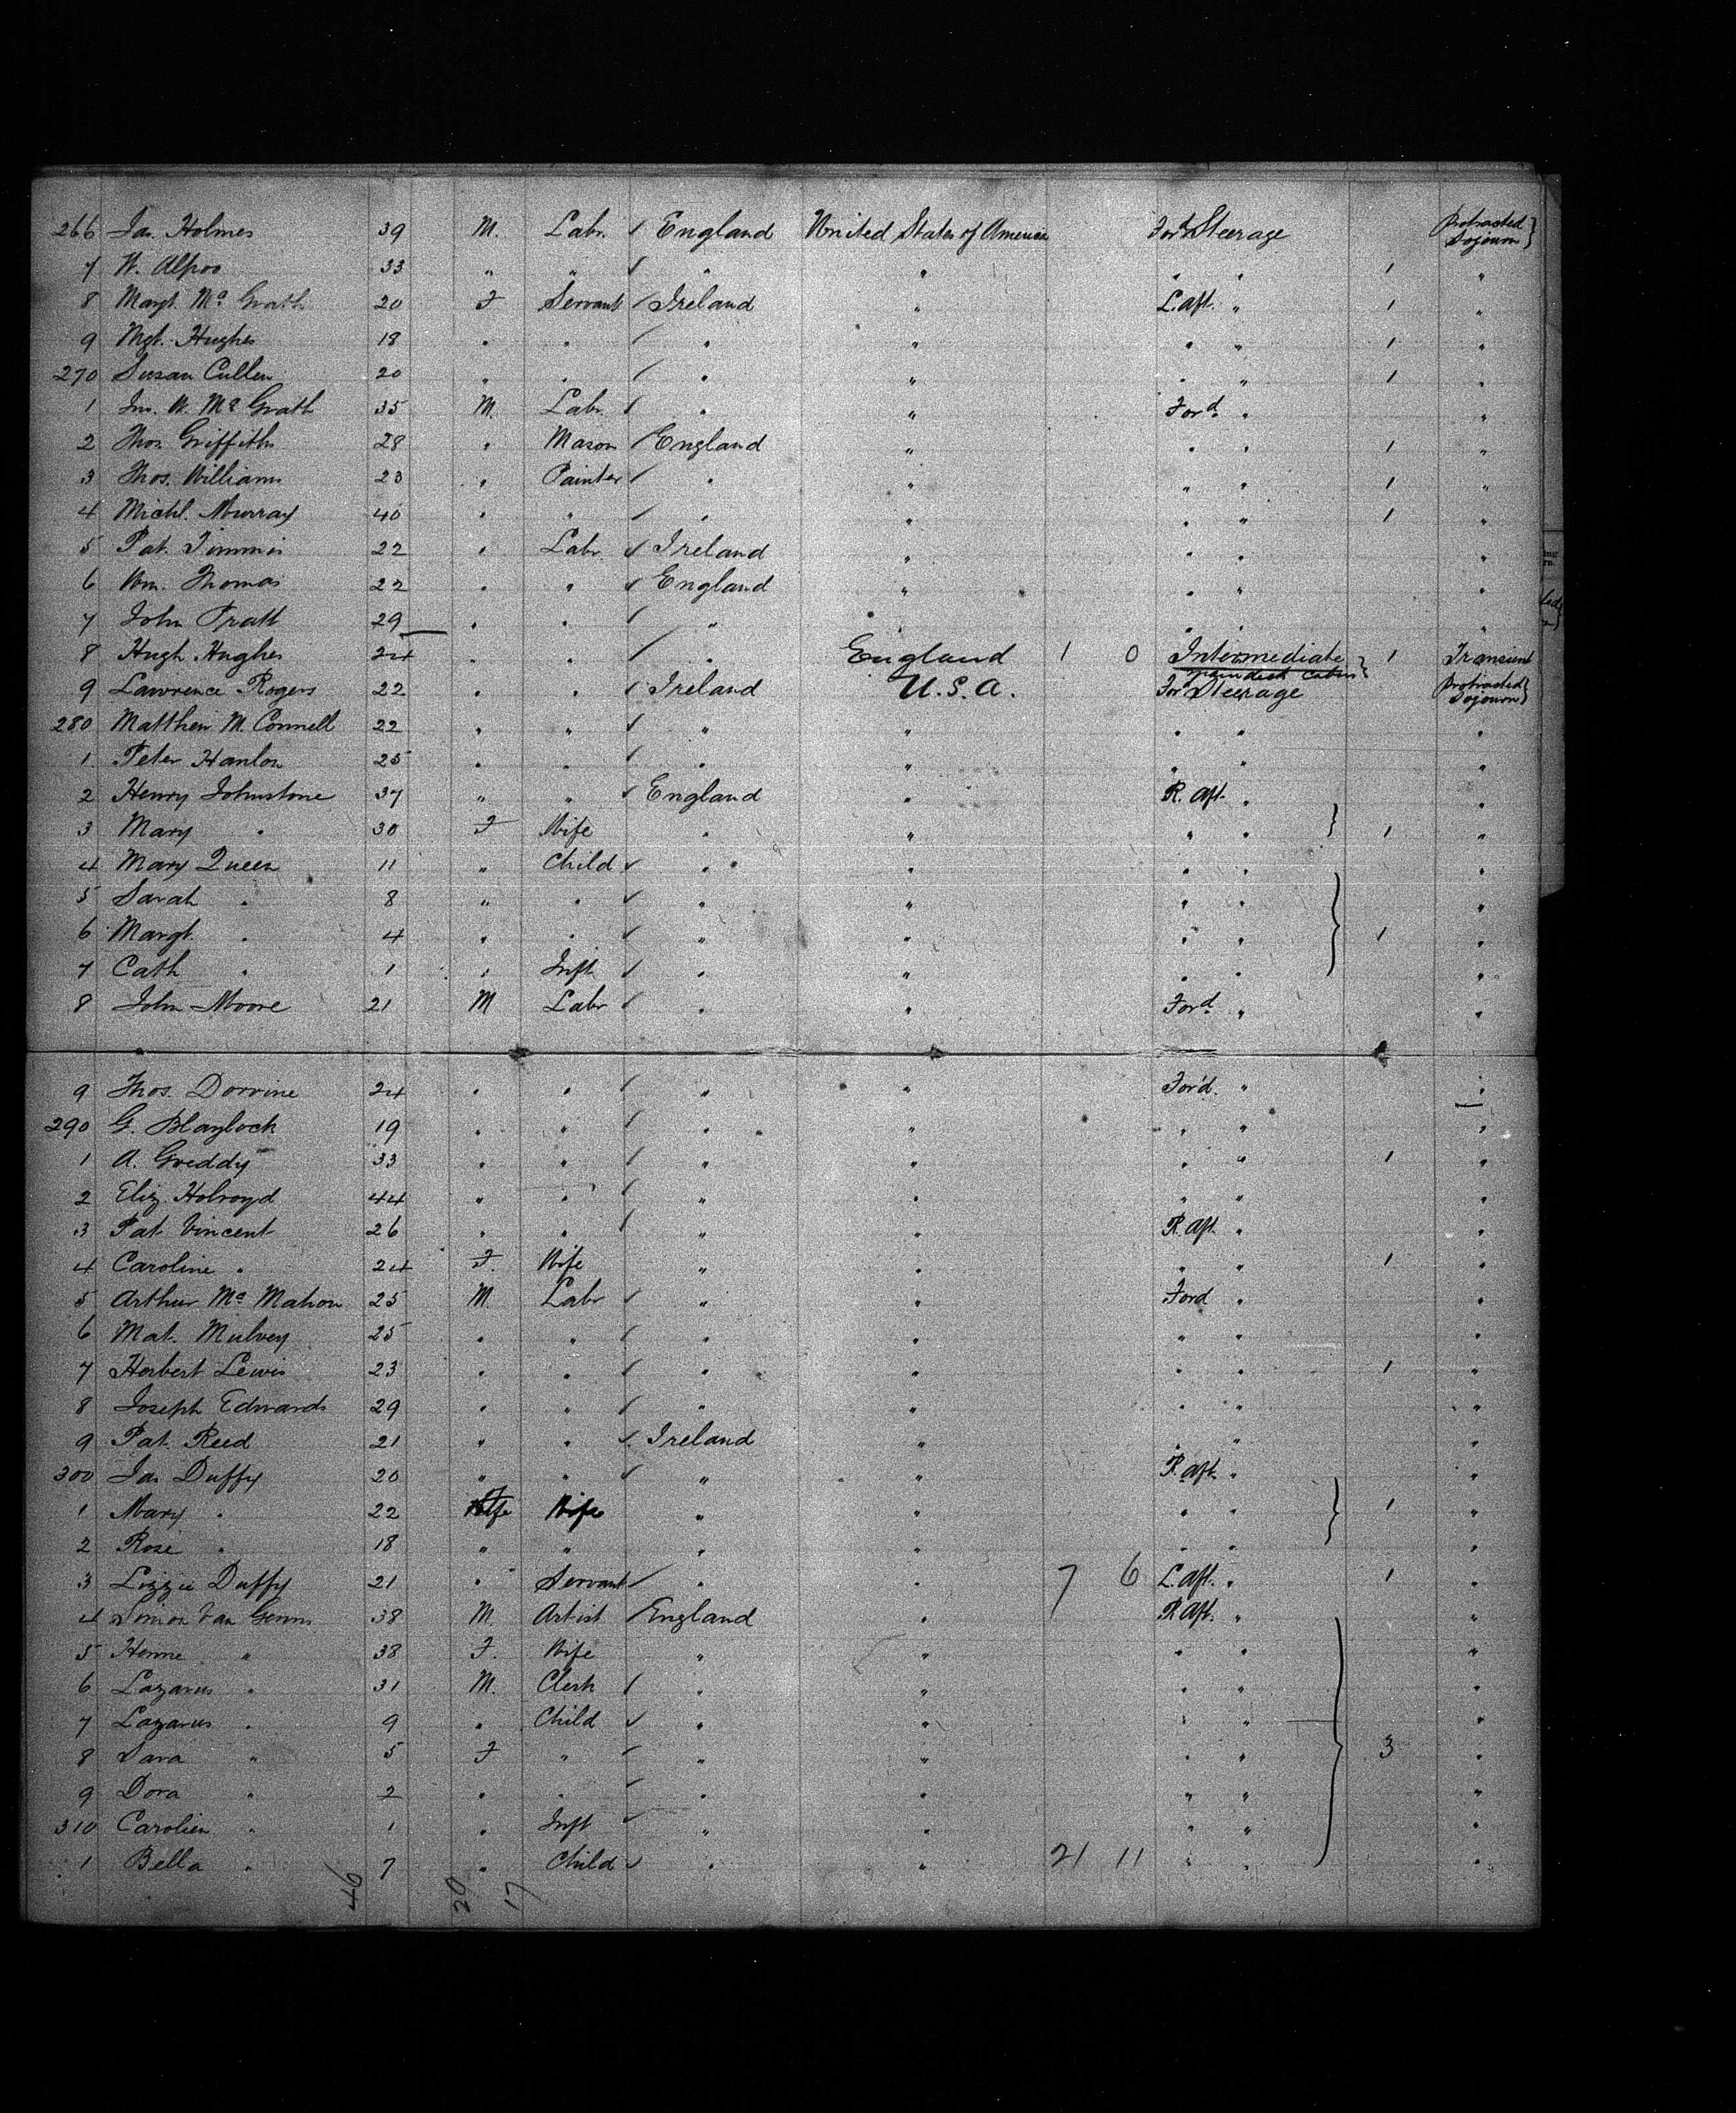 266 Jas. Holmes 39 M. Labr. England United States of America Ford Steerage Protracted Sojourn
7 W. 33 " " " " " " 1 "
8 Margt. Mc Grath 20 F Servant Ireland " L. aft. " 1 "
9 Mgt. Hughes 18 " " " " " " 1 "
270 Susan Cullen 20 " " " " " " 1 "
1 Jno. W. Mc Grath 35 M. Labr. " " Ford. " "
2 Thos. Griffiths 28 " Mason England " " " 1 "
3 Thos. Williams 23 " Painter " " " " 1 "
4 Michl. Murray 40 " " " " " " 1 "
5 Pat. Timmis 22 " Labr. Ireland " " " "
6 Wm. Thomas 22 " " England " " " "
7 John Pratt 29 " " " " " " "
8 Hugh Hughes 24 " " " England 1 0 Intermediate 1 Transient
9 Lawrence Rogers 22 " " Ireland U.S.A. For Steerage Protracted Sojourn
280 Matthew M. Connell 22 " " " " " " "
1 Peter Hanlon 25 " " " " " " "
2 Henry Johnstone 37 " " England " R. aft. " "
3 Mary " 30 F Wife " " " " 1 "
4 Mary Queen 11 " Child " " " " "
5 Sarah " 8 " " " " " " "
6 Margt. " 4 " " " " " " 1 "
7 Cath " 1 " Inft " " " " "
8 John Moore 21 M Labr " " Ford. " "
9 Thos. Dorrine 24 " " " " Ford. " "
290 G. Blaylock 19 " " " " " " "
1 A. Greddy 33 " " " " " " 1 "
2 Eliz. Holroyd 44 " " " " " " "
3 Pat. Vincent 26 " " " " R. aft. " "
4 Caroline " 24 F. Wife " " " " 1 "
5 Arthur Mc Mahon 25 M. Labr " " Ford " "
6 Mat. Mulvey 25 " " " " " " "
7 Herbert Lewis 23 " " " " " " 1 "
8 Joseph Edwards 29 " " " " " " "
9 Pat. Reed 21 " " Ireland " " " "
300 Jas Duffy 20 " " " " R. aft. " "
1 Mary " 22 F Wife " " " " 1 "
2 Rose " 18 " " " " " " "
3 Lizzie Duffy 21 " Servant " " 7 6 L. aft. " 1 "
4 Simon Van Genns 38 M Artist England " R. aft. " "
5 " 38 F. Wife " " " " "
6 Lazarus " 31 M. Clerk " " " " "
7 Lazarus " 9 " Child " " " " "
8 Sara " 5 F " " " " " 3 "
9 Dora " 2 " " " " " " "
310 Carolien " 1 " Inft " " " " "
1 Bella " 7 " Child " " 21 11 " " "
20 17